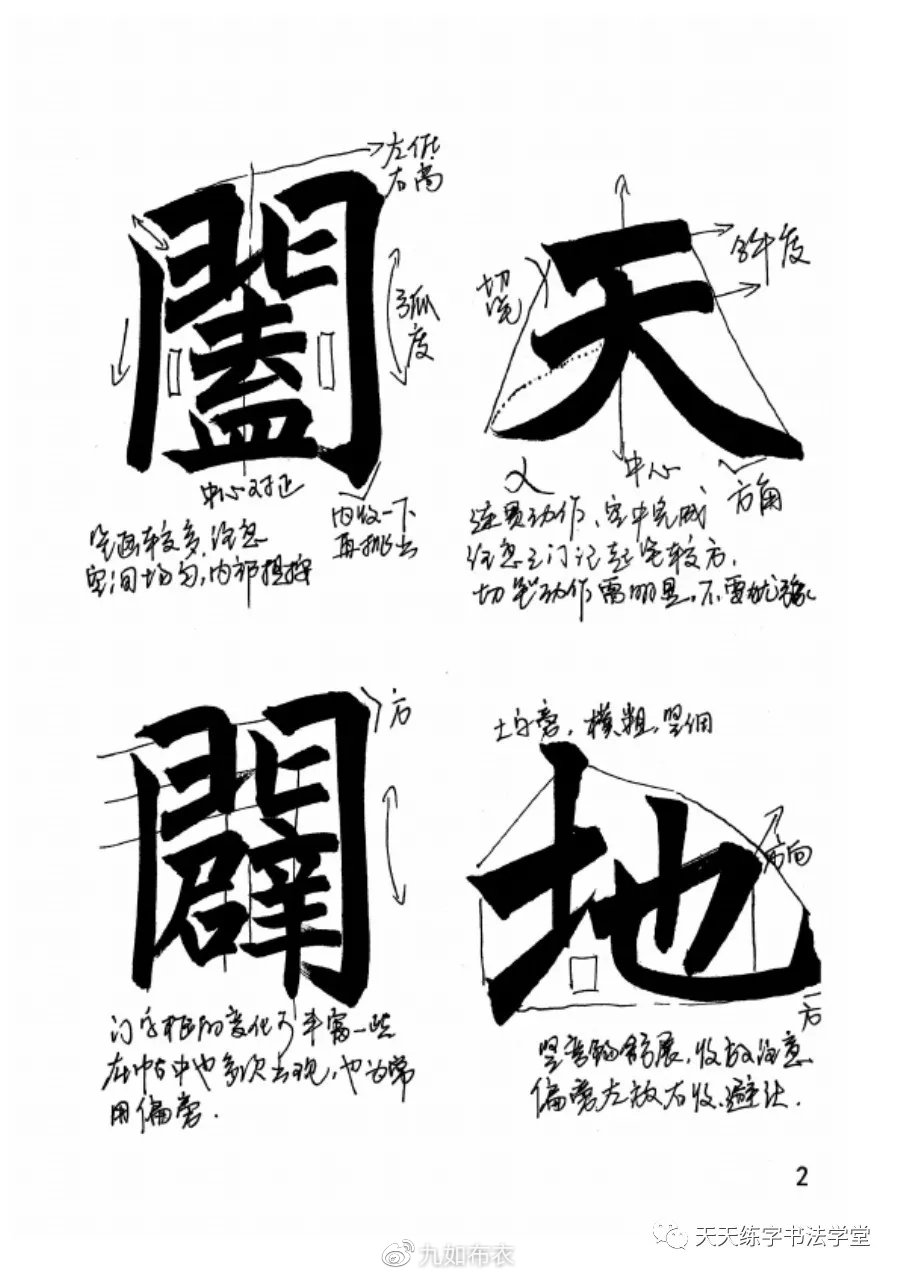 左低
右高
闔
弧
度
中心对正
内收一下
再挑出
笔画较多，注意
空间均匀，内部提按
天
切
笔
斜度
中心
方角
连贯动作，空中完成
注意三门记起笔较方，
切笔动作需明显，不要犹豫
闢
方
门字框的变化可丰富一些
在帖中也多次出现，也为常
用偏旁．
土字旁，横粗，竖细
地
方向
方
竖弯钩舒展，收放注意
偏旁左放右收，避让．
2
天天练字书法学堂
九如布衣